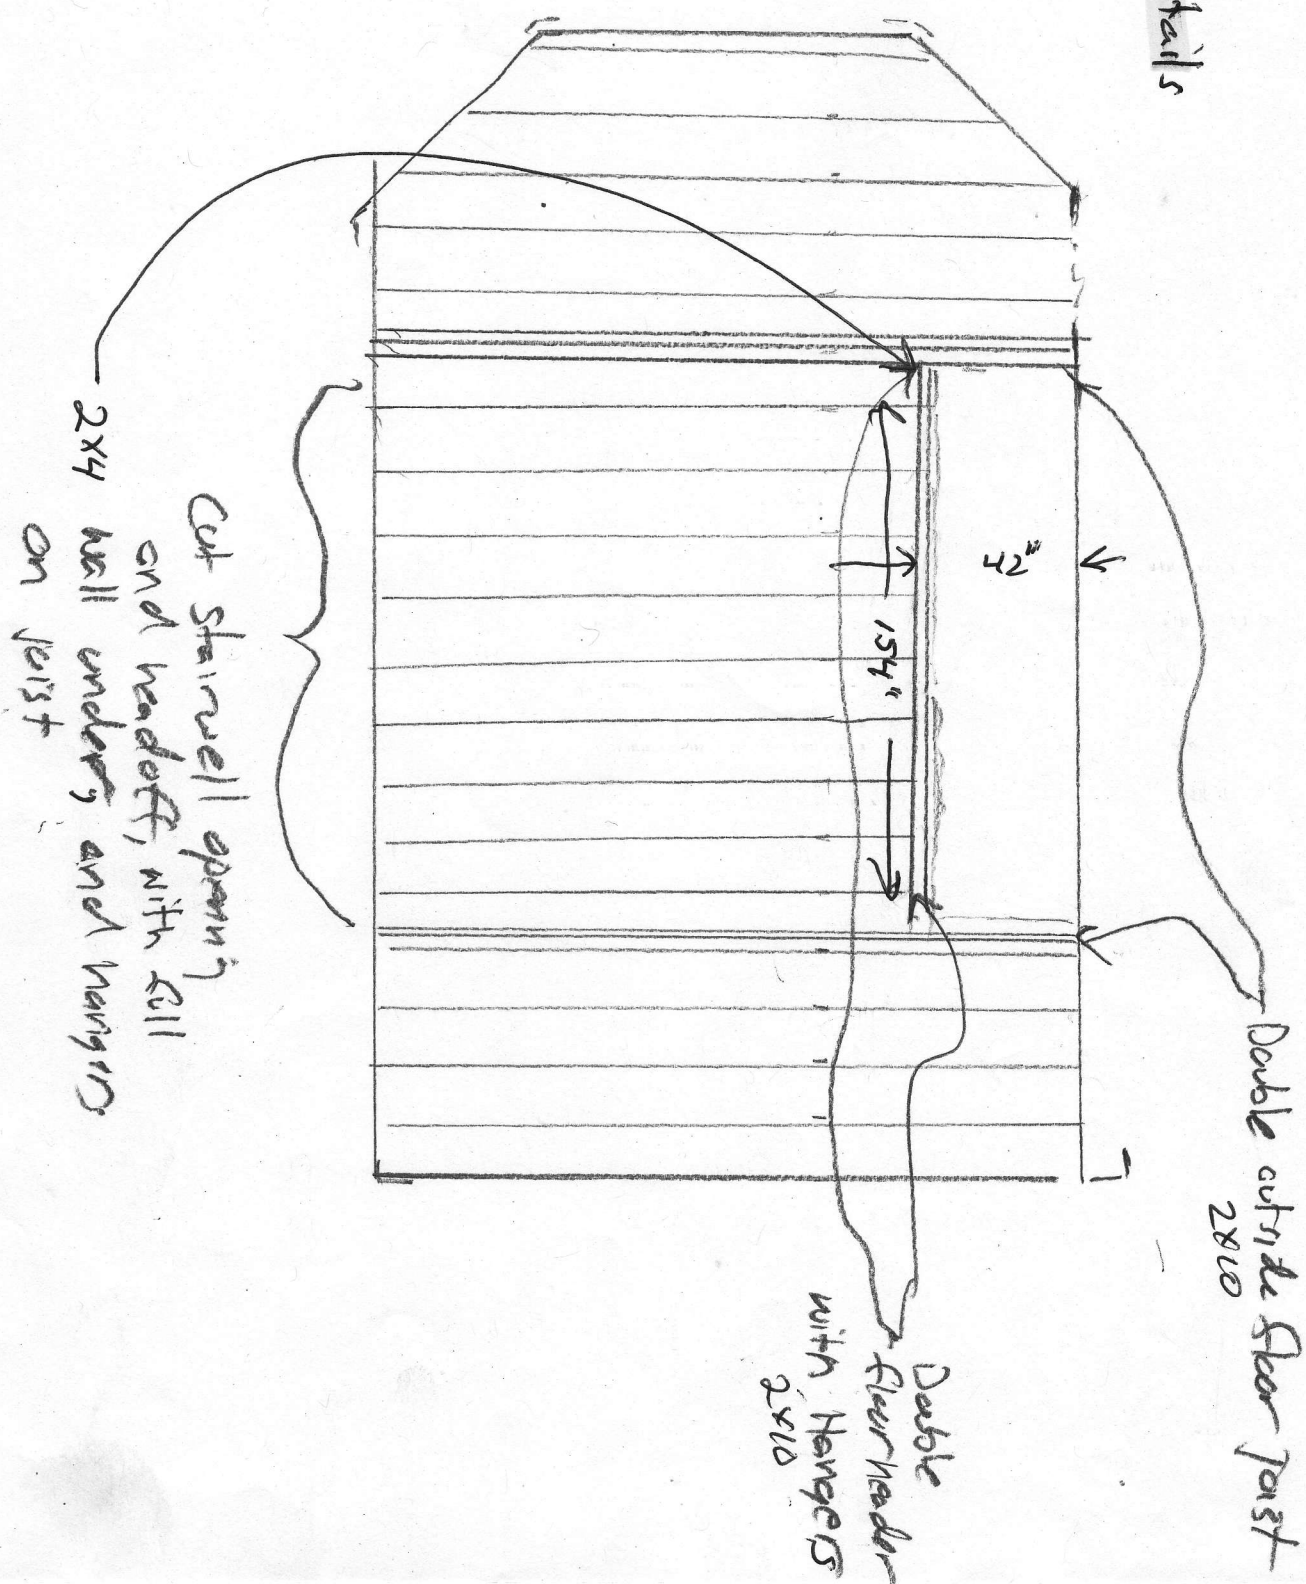 tails
Double outside floor joist
2x10
42"
154"
Double
floor header
with Hangers
2x10
Cut Stairwell opening
and headoff, with full
2x4 wall under, and hangers
on joist